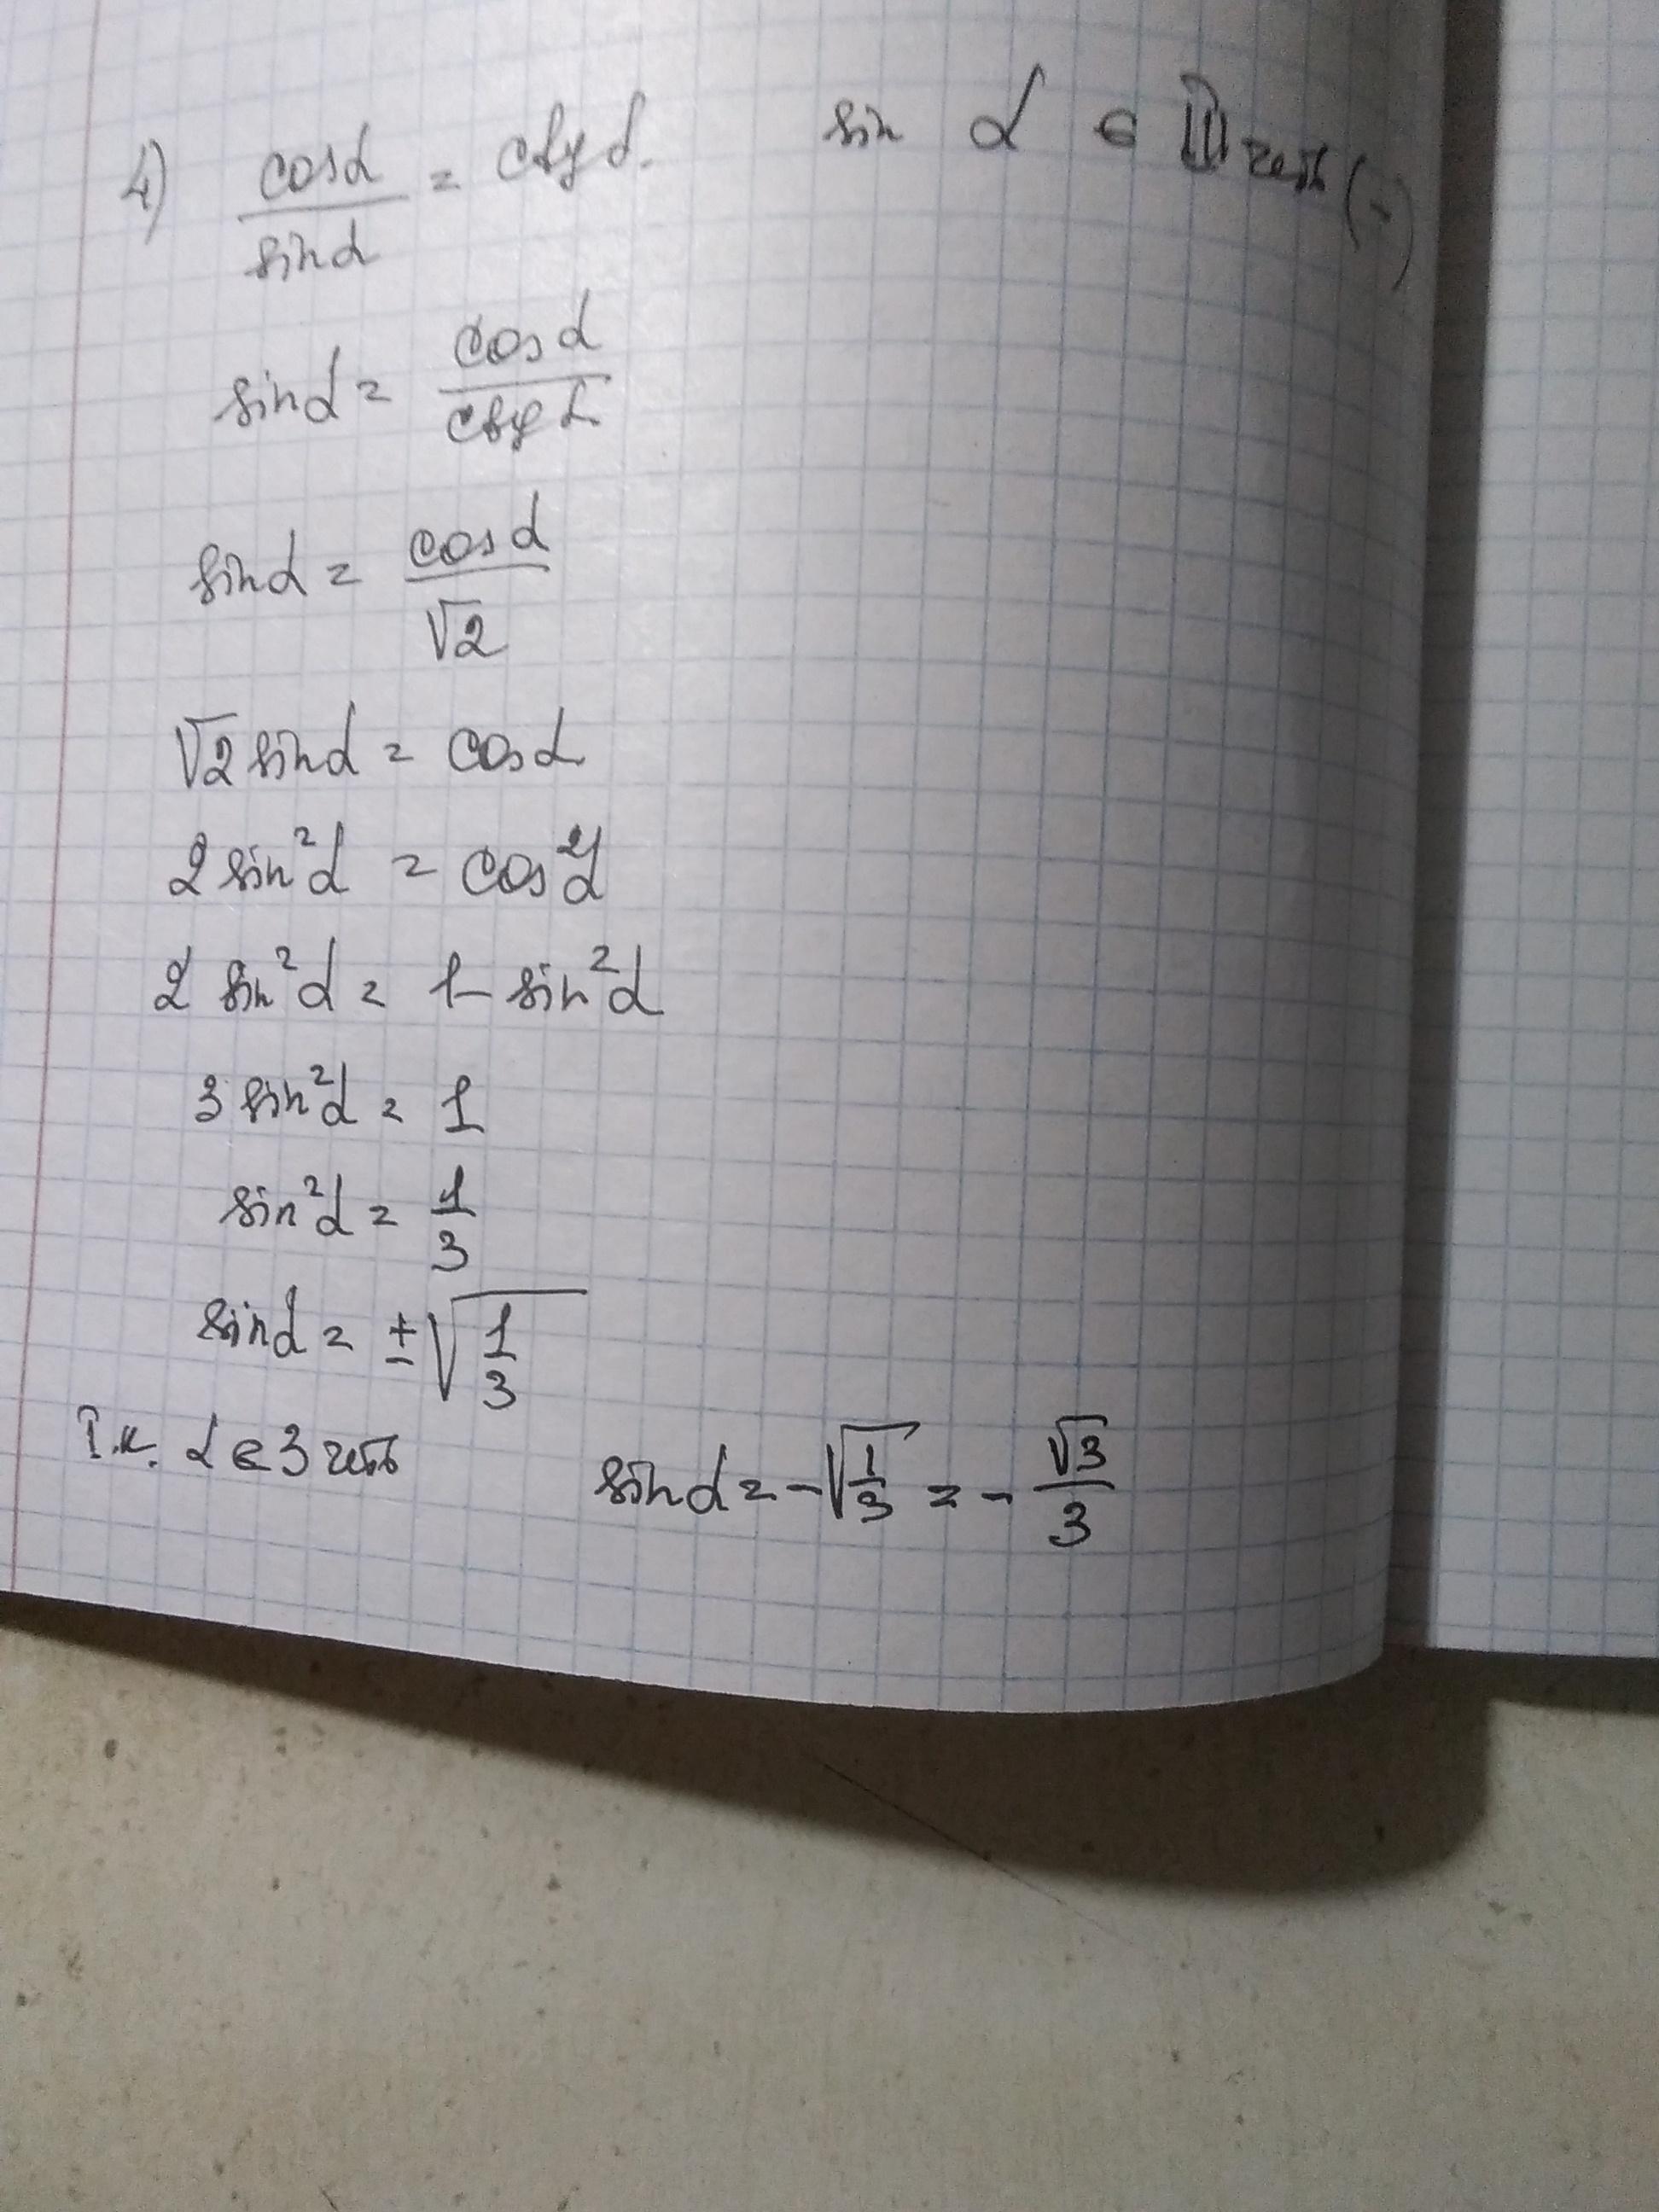 4) cosα/sinα = ctg α. sin α ∈ III четв (-)
sinα = cosα/ctgα
sinα = cosα/√2
√2 sinα = cosα
2 sin²α = cos²α
2 sin²α = 1 - sin²α
3 sin²α = 1
sin²α = 1/3
sinα = ±√(1/3)
Т.к. α ∈ 3 четв sinα = -√(1/3) = -√3/3